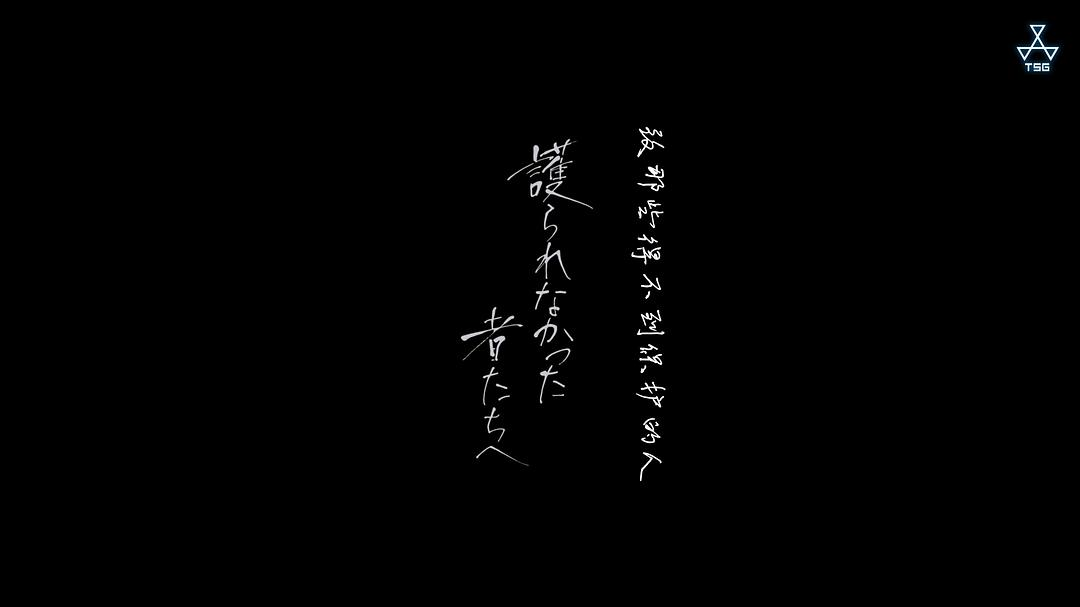 致那些得不到保护的人
護られなかった
者たちへ
TSG